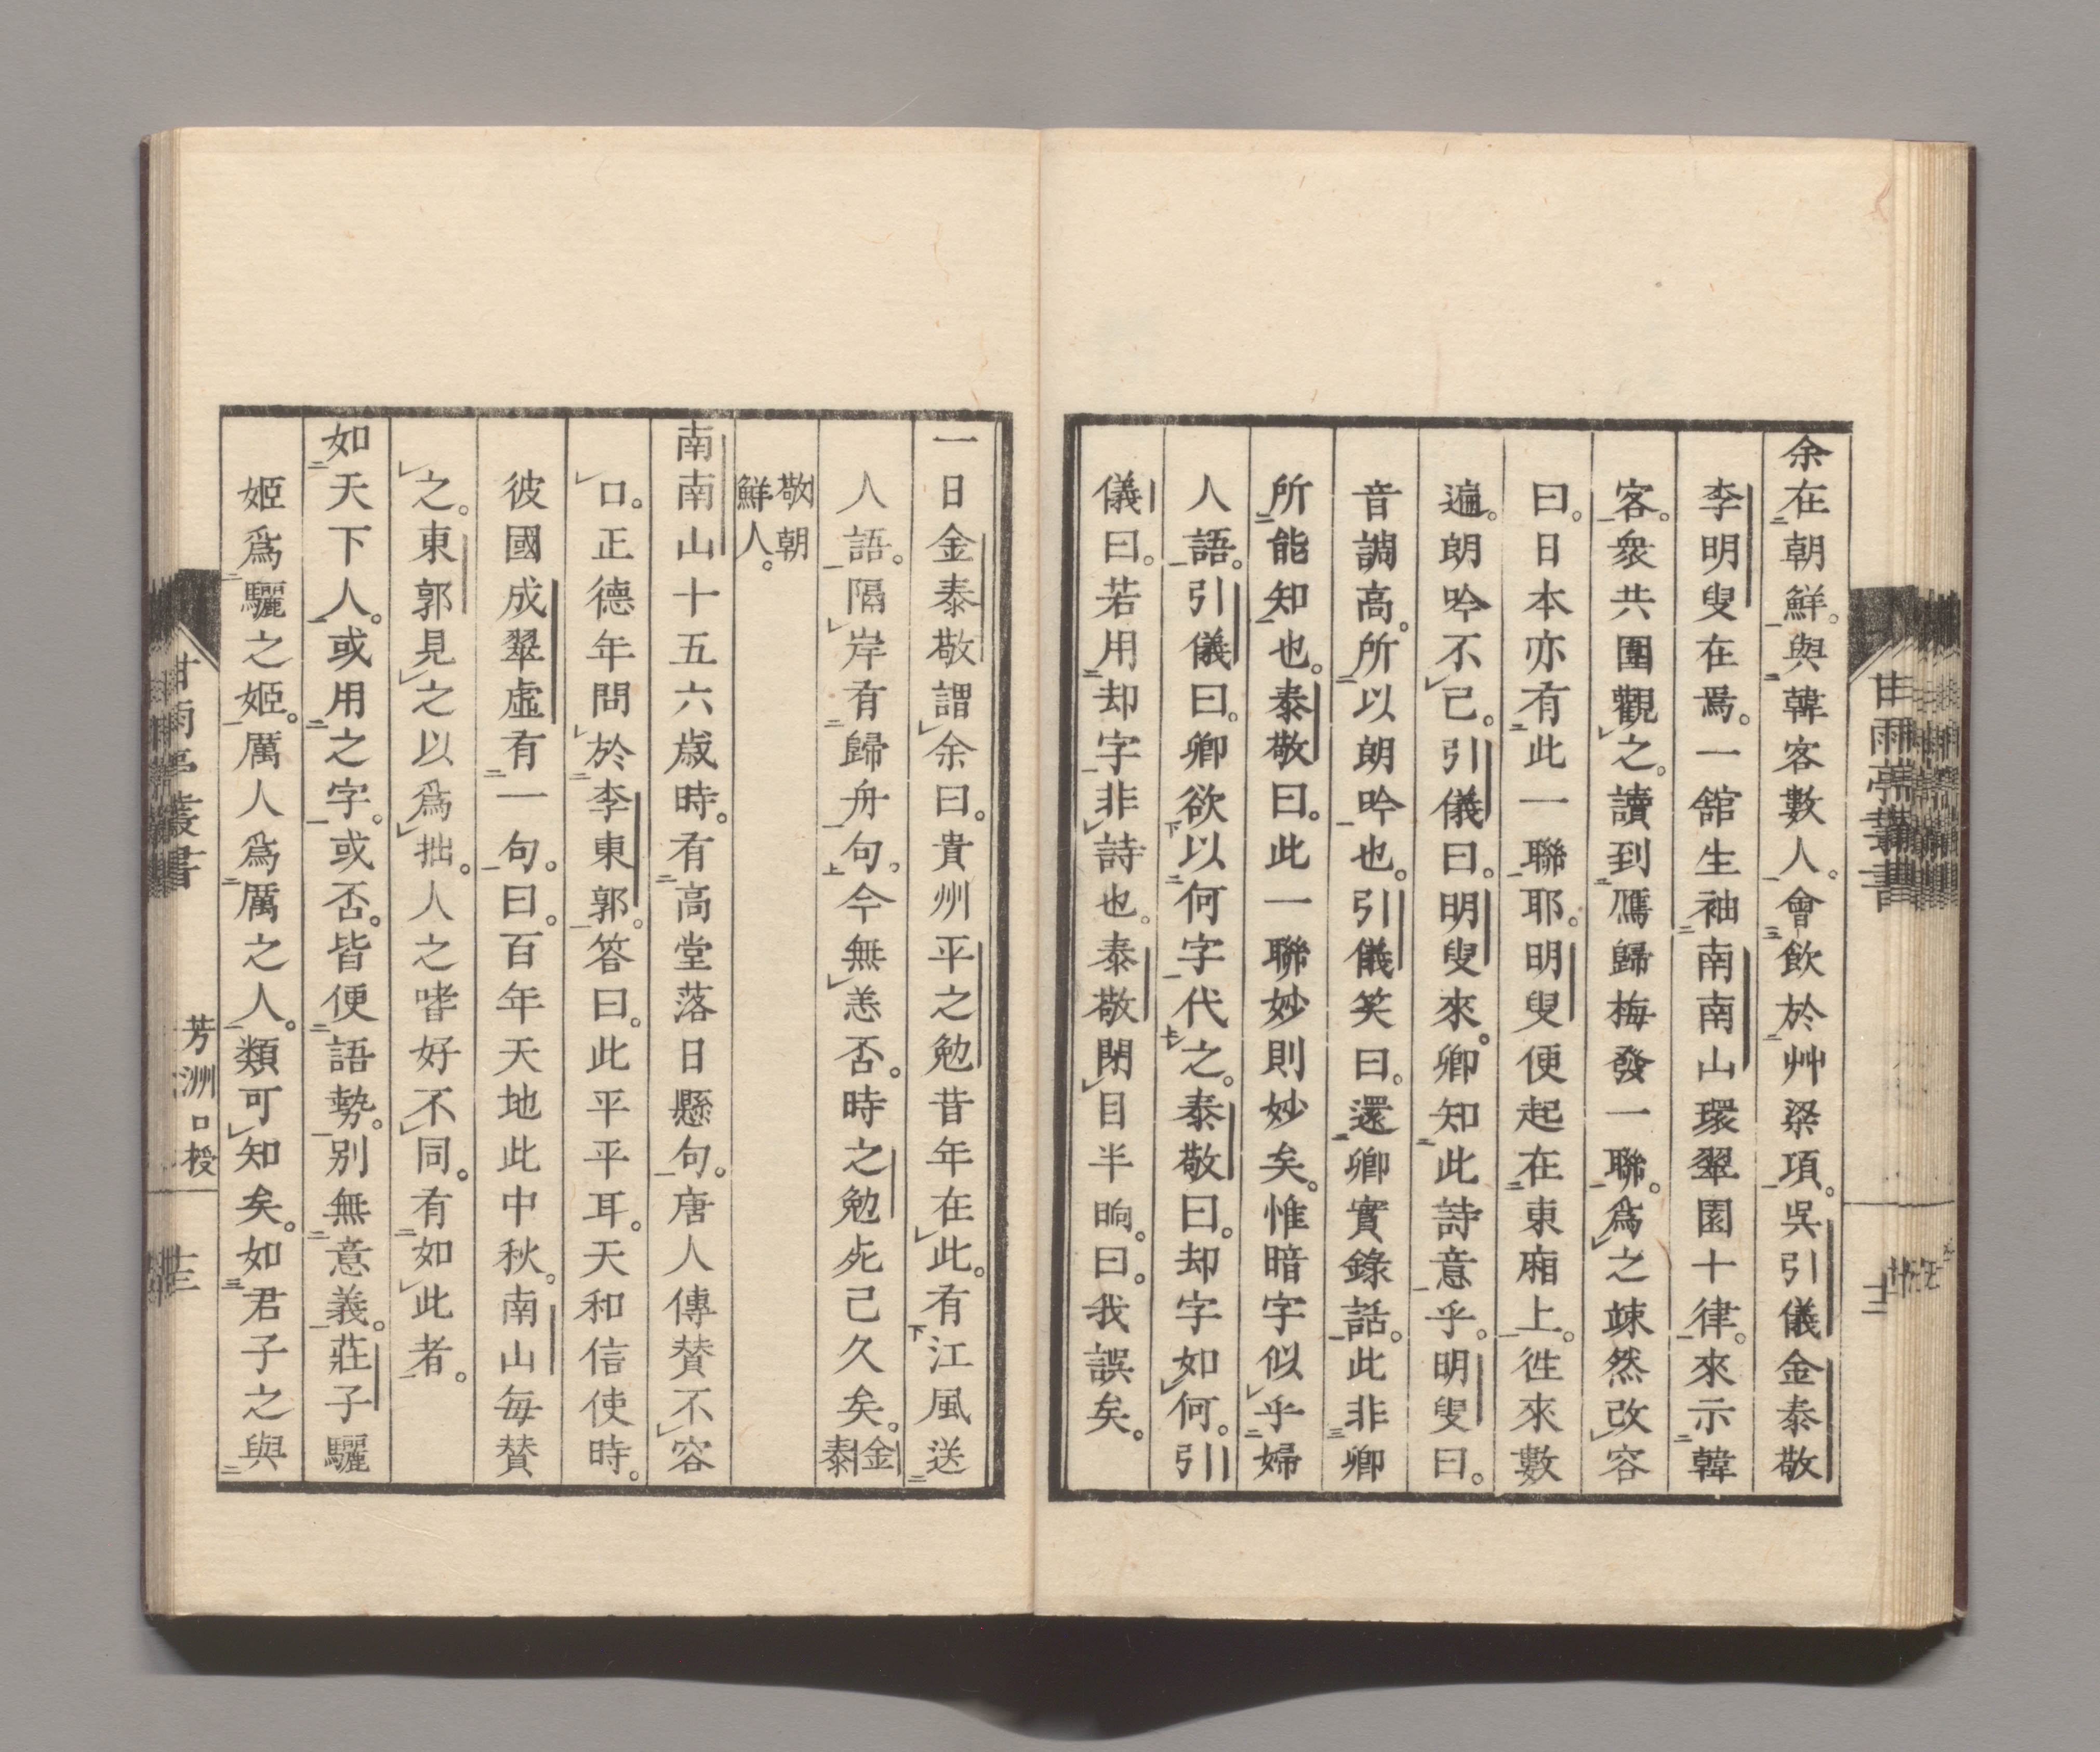 余在朝鮮。與韓客數人。會飲於艸梁項。吳引儀金泰敬
李明叟在焉。一舘生袖南南山環翠園十律。來示韓
客。衆共圍觀之。讀到鴈歸梅發一聯。爲之竦然改容
曰。日本亦有此一聯耶。明叟便起在東廂上。徃來數
遍。朗吟不己。引儀曰。明叟來。卿知此詩意乎。明叟曰。
音調高。所以朗吟也。引儀笑曰。還卿實錄話。此非卿
所能知也。泰敬曰。此一聯妙則妙矣。惟暗字似乎婦
人語。引儀曰。卿欲以何字代之。泰敬曰。却字如何。引
儀曰。若用却字非詩也。泰敬閉目半晌。曰。我誤矣。
一日金泰敬謂余曰。貴州平之勉昔年在此。有江風送
人語。隔岸有歸舟句。今無恙否。時之勉死己久矣。金泰
敬朝鮮人。
南南山十五六歳時。有高堂落日懸句。唐人傳賛不容
口。正德年問於李東郭。答曰。此平平耳。天和信使時。
彼國成翠虛有一句。曰。百年天地此中秋。南山每賛
之。東郭見之以爲拙。人之嗜好不同。有如此者。
如天下人。或用之字。或否。皆便語勢。別無意義。莊子驪
姬爲驪之姬。厲人爲厲之人。類可知矣。如君子之與
甘雨亭叢書
十二
甘雨亭叢書
芳洲口授
十三